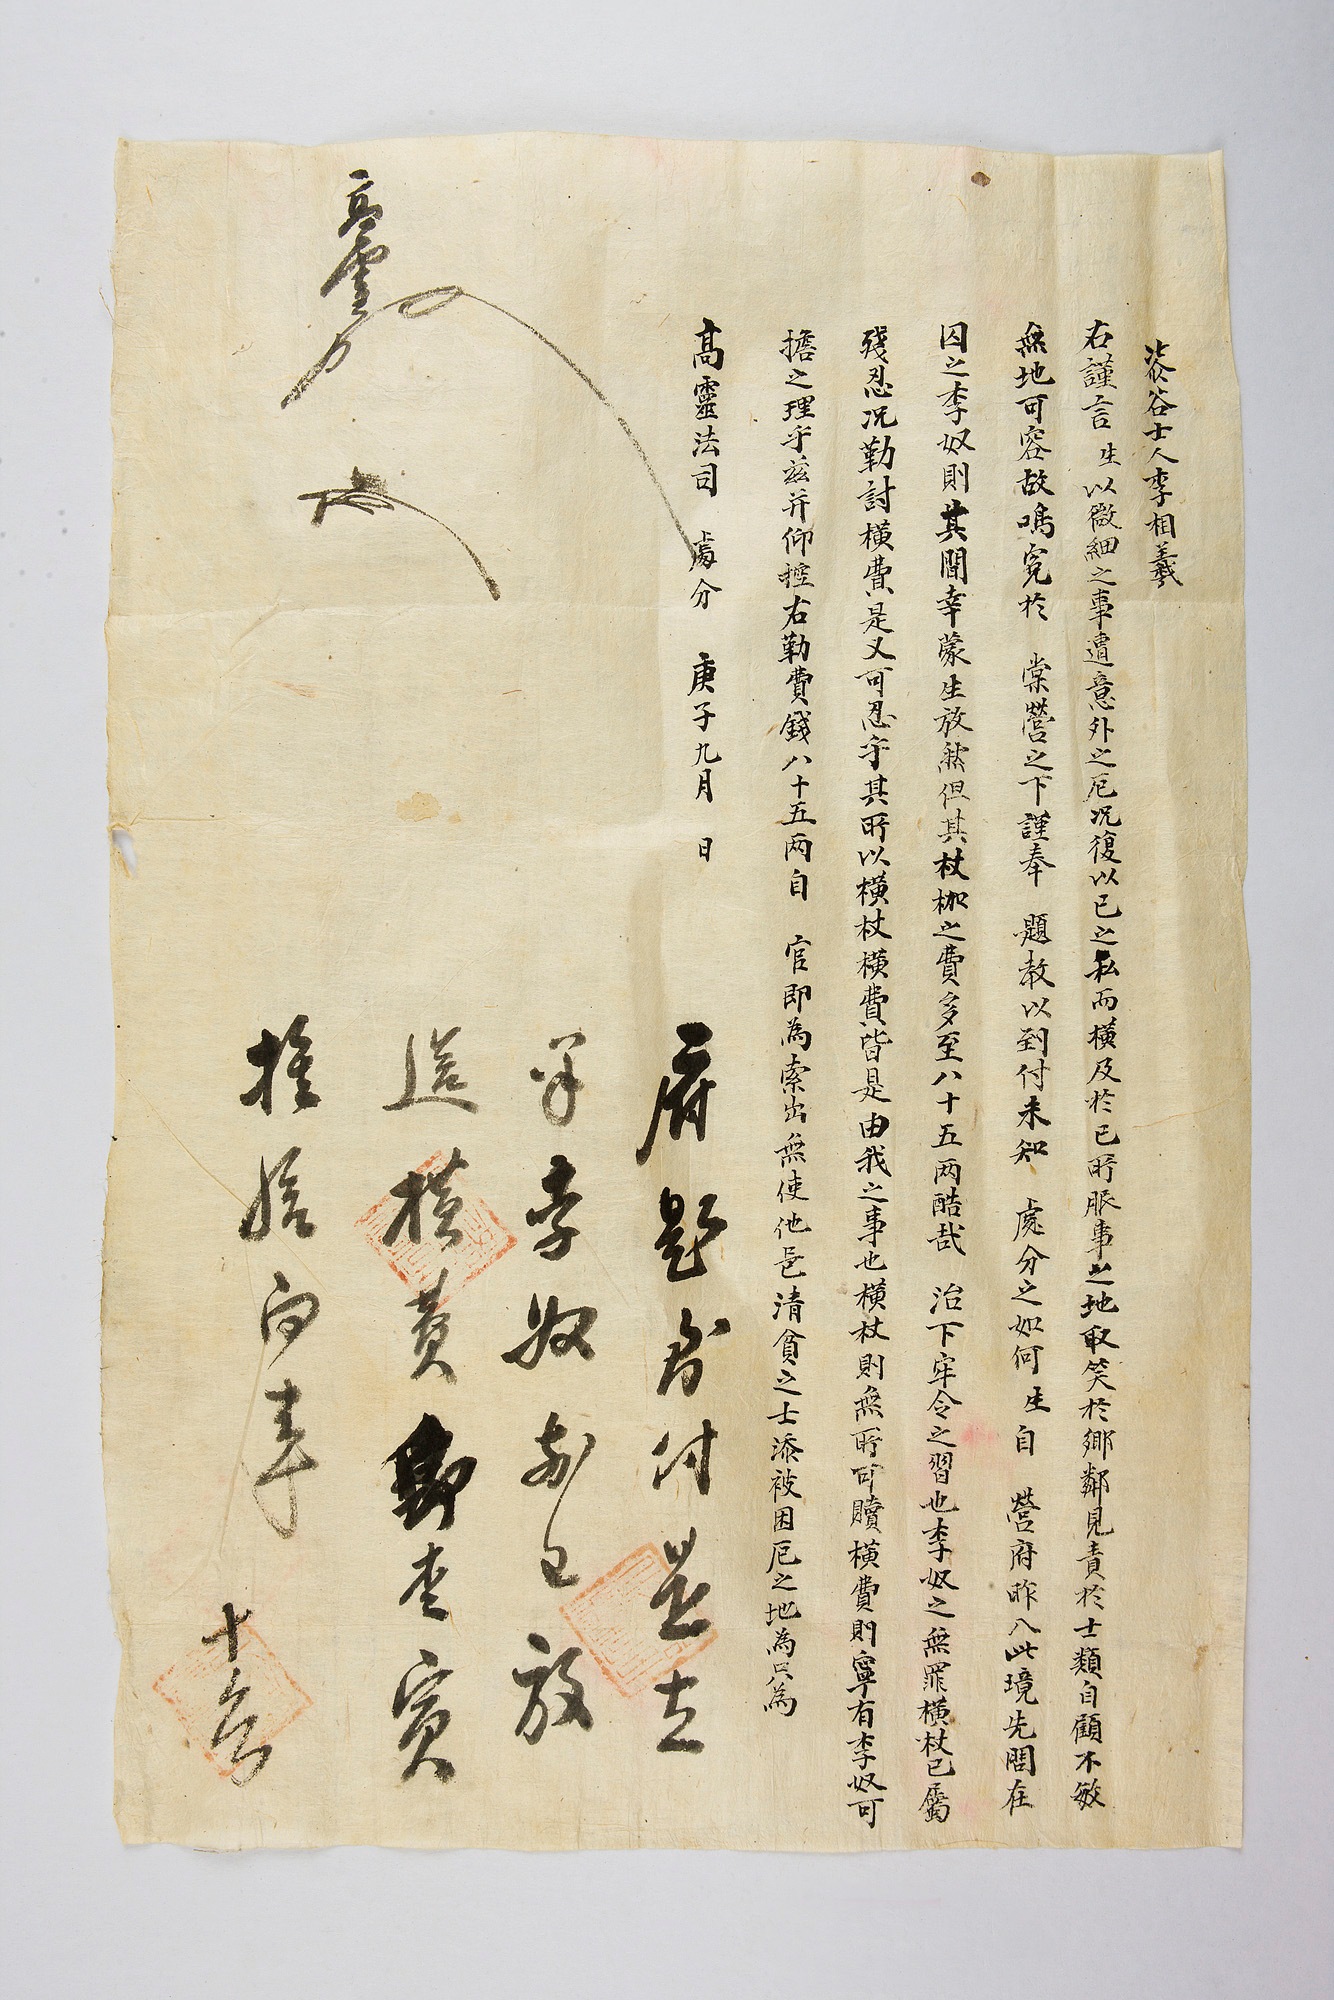 漆谷士人李相羲
右謹言 生以微細之事遭意外之厄况復以已之私而橫及於已所脤事之地取笑於鄉鄰見責於士類自顧不敏
無地可容故鳴寃於 棠營之下謹奉 題教以到付未知 處分之如何 生自 營府昨入此境先問在
囚之李奴則其間幸蒙生放然但其杖枷之費多至八十五两酷哉 治下牢令之習也李奴之無罪橫杖已屬
殘忍况勒討橫費是又可忍乎其所以橫杖橫費皆是由我之事也橫杖則無所可贖橫費則寧有李奴可
擔之理乎玆并仰控右勒費錢八十五两自 官即為索出無使他邑清貧之士添被困厄之地為只為
高靈法司 處分 庚子九月 日
府題到付是在
李奴前已放
送橫費即查實
推給向事
十六